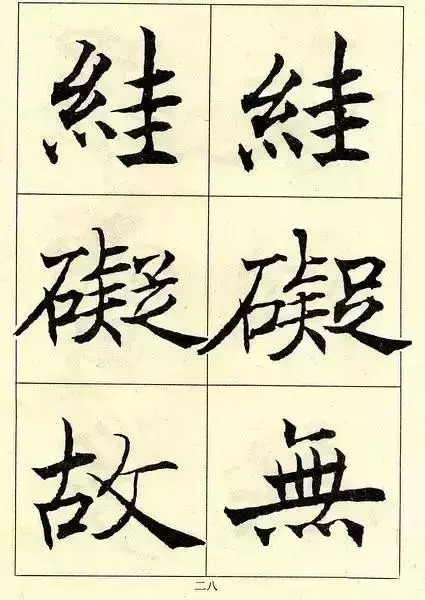 絓礙無
絓礙故
二八